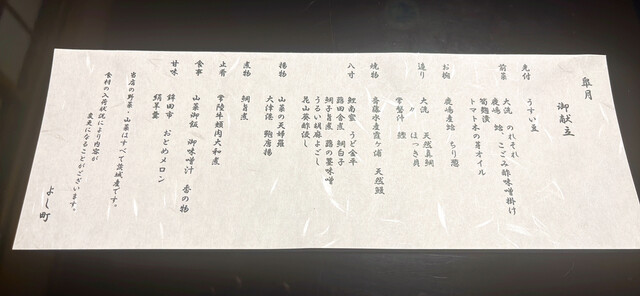 皐月
御献立
先付
うすい豆
前菜
大洗 のれそれ こごみ酢味噌掛け
鹿嶋 蛤
筍麹漬
トマト木の芽オイル
お椀
鹿嶋産蛤 ちり葱
造り
大洗 天然真鯛
〃 ほっき貝
常磐汁 鰹
焼物
斎藤水産霞ヶ浦 天然鰻
八寸
鮭南蛮 うど金平
蕗田舎煮 鯛白子
鯛子旨煮 蕗の薹味噌
うるい胡麻よごし
花山葵酢浸し
揚物
山菜の天婦羅
大津港 鮑唐揚
煮物
鯛旨煮
止肴
常陸牛頬肉大和煮
食事
山菜御飯 御味噌汁 香の物
甘味
鉾田市 おとめメロン
絹羊羹
当店の野菜・山菜はすべて茨城産です。
食材の入荷状況により内容が
変更になることがございます。
よし町